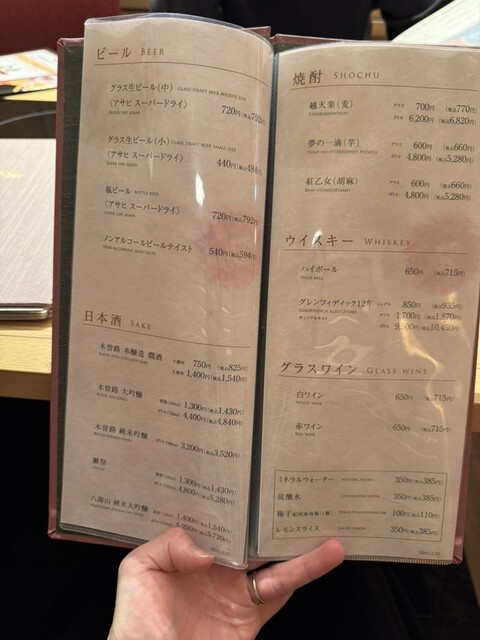 ビール BEER
グラス生ビール(中) GLASS DRAFT BEER MIDDLE SIZE
(アサヒ スーパードライ) 720円(税込792円)
SUPER DRY ASAHI
グラス生ビール(小) GLASS DRAFT BEER SMALL SIZE
(アサヒ スーパードライ) 440円(税込484円)
SUPER DRY ASAHI
瓶ビール BOTTLE BEER
(アサヒ スーパードライ) 720円(税込792円)
SUPER DRY ASAHI
ノンアルコールビールテイスト 540円(税込594円)
日本酒 SAKE
木曽路 本醸造 燗酒 750円(税込825円)
1,400円(税込1,540円)
木曽路 大吟醸 1,300円(税込1,430円)
4,400円(税込4,840円)
木曽路 純米吟醸 3,200円(税込3,520円)
獺祭 1,300円(税込1,430円)
4,800円(税込5,280円)
八海山 純米大吟醸 1,400円(税込1,540円)
5,200円(税込5,720円)
焼酎 SHOCHU
越天楽(麦) グラス 700円 (税込770円)
ボトル 6,200円 (税込6,820円)
夢の一滴(芋) グラス 600円 (税込660円)
ボトル 4,800円 (税込5,280円)
紅乙女(胡麻) グラス 600円 (税込660円)
ボトル 4,800円 (税込5,280円)
ウイスキー WHISKEY
ハイボール 650円 (税込715円)
グレンフィディック12年 シングル 850円 (税込935円)
ダブル 1,700円 (税込1,870円)
ボトル 9,500円 (税込10,450円)
グラスワイン GLASS WINE
白ワイン 650円 (税込715円)
WHITE WINE
赤ワイン 650円 (税込715円)
RED WINE
ミネラルウォーター MINERAL WATER 350円(税込385円)
炭酸水 CARBONATED WATER 350円(税込385円)
梅干 100円(税込110円)
レモンスライス 350円(税込385円)